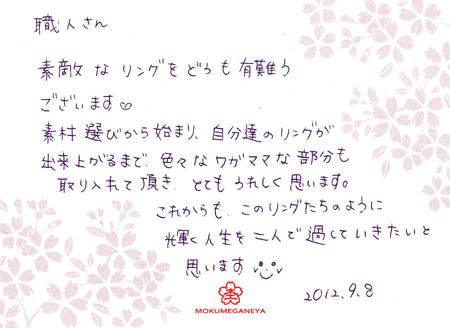 職人さん
素敵なリングをどうも有難う
ございます♡
素材選びから始まり、自分達のリングが
出来上がるまで、色々なワガママな部分も
取り入れて頂き、とてもうれしく思います。
これからも、このリングたちのように
輝く人生を二人で過していきたいと
思います
2012.9.8
MOKUMEGANEYA